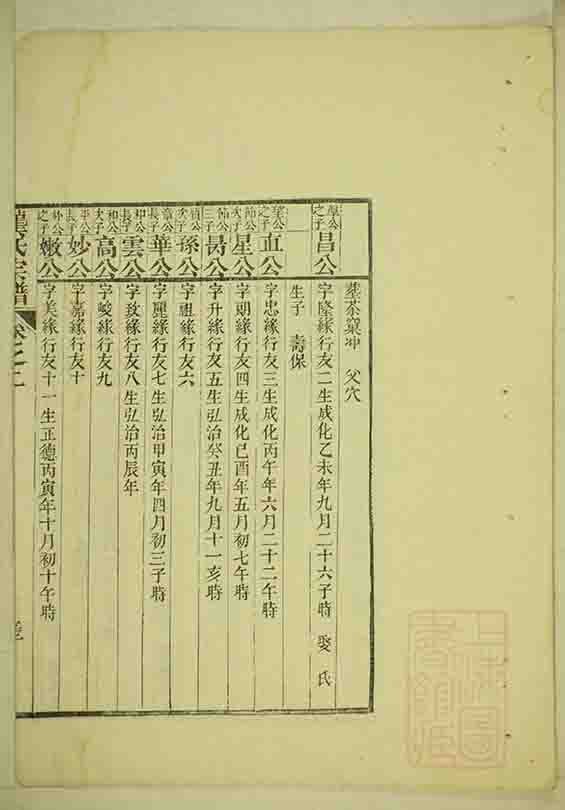 葬茶窠冲 父穴
之子 昌公 字隆緣行友二生成化乙未年九月二十六子時 娶 氏
生子 壽保
之子 直公 字忠緣行友三生成化丙午年六月二十二午時
次子 星公 字朗緣行友四生成化己酉年五月初七午時
三子 昺公 字升緣行友五生弘治癸丑年九月十一亥時
次子 孫公 字祖緣行友六
章公長子 華公 字麗緣行友七生弘治甲寅年四月初三子時
長子 雲公 字致緣行友八生弘治丙辰年
和公次子 高公 字峻緣行友九
平公長子 妙公 字嘉緣行友十
之子 嫩公 字美緣行友十一生正德丙寅年十月初十午時
氏宗譜 卷之二
上海圖書館藏